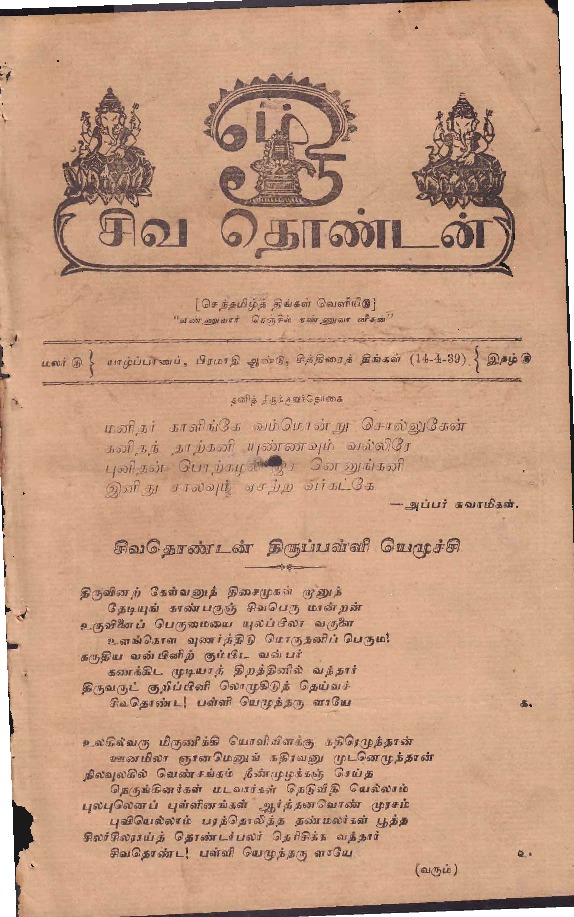 ஓம்
சிவ தொண்டன்
[செந்தமிழ்த் திங்கள் வெளியீடு]
“எண்ணுவார் நெஞ்சில் நண்ணுவா னீசன்”
மலர் ௫ } யாழ்ப்பாணம், பிரமாதி ஆண்டு, சித்திரைத் திங்கள் (14-4-39) { இதழ்
தனித் திருக்குறுந்தொகை
மனிதர் காளிங்கே வம்மொன்று சொல்லுகேன்
கனிதந் தாற்கனி யுண்ணவும் வல்லிரே
புனிதன் பொற்கழல் ஈச னெனுங்கனி
இனிது சாலவும் ஏசற்ற வர்கட்கே
—அப்பர் சுவாமிகள்.
சிவதொண்டன் திருப்பள்ளி யெழுச்சி
திருவினற் கேள்வனுத் திசைமுகன் முனுத்
தேடியுங் காண்பருஞ் சிவபெரு மான்றன்
உருவினைப் பெருமையை யுலப்பிலா வருளை
உளங்கொள வுணர்த்திடு மொருதனிப் பெரும!
கருதிய வன்பினிற் கும்பிட வன்பர்
கணக்கிட முடியாத் திறத்தினில் வந்தார்
திருவருட் குறிப்பினி லொழுகிடுத் தெய்வச்
சிவதொண்ட! பள்ளி யெழுந்தரு ளாயே க.
உலகில்வரு மிருணீக்கி யொளிவிளக்கு கதிரெழுந்தான்
ஊனமிலா ஞானமெனுங் கதிரவனு முடனெழுந்தான்
நிலவுலகில் வெண்சங்கம் நீண்முழக்கஞ் செய்த
நெருங்கினர்கள் மடவார்கள் நெடுவீதி யெல்லாம்
புலபுலெனப் புள்ளினங்கள் ஆர்த்தனவொண் முரசம்
புவியெல்லாம் பரந்தொலித்த தண்மலர்கள் பூத்த
சிலர்சிலராய்த் தொண்டர்பலர் தெரிசிக்க வந்தார்
சிவதொண்ட! பள்ளி யெழுந்தரு ளாயே உ.
(வரும்)